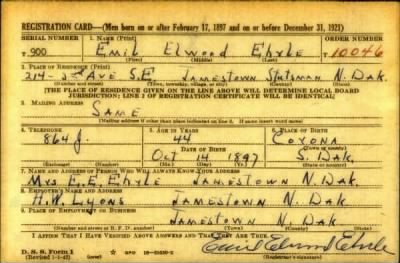 REGISTRATION CARD—(Men born on or after February 17, 1897 and on or before December 31, 1921)
SERIAL NUMBER 1. NAME (Print) ORDER NUMBER
T 900 Emil Elwood Ehrle 10046
(First) (Middle) (Last)
2. PLACE OF RESIDENCE (Print)
214-2nd Ave S.E. Jamestown Stutsman N. Dak.
(Number and street) (Town, township, village, or city) (County) (State)
[THE PLACE OF RESIDENCE GIVEN ON THE LINE ABOVE WILL DETERMINE LOCAL BOARD
JURISDICTION; LINE 2 OF REGISTRATION CERTIFICATE WILL BE IDENTICAL]
3. MAILING ADDRESS
Same
[Mailing address if other than place indicated on line 2. If same insert word same]
4. TELEPHONE 5. AGE IN YEARS 6. PLACE OF BIRTH
864 J. 44 Corona
DATE OF BIRTH
Oct 14 1897 S. Dak.
(Exchange) (Number) (Mo.) (Day) (Yr.) (State or country)
7. NAME AND ADDRESS OF PERSON WHO WILL ALWAYS KNOW YOUR ADDRESS
Mrs E.E. Ehrle Jamestown N. Dak.
8. EMPLOYER'S NAME AND ADDRESS
H.W. Lyons Jamestown N. Dak.
9. PLACE OF EMPLOYMENT OR BUSINESS
Jamestown N. Dak
(Number and street or R. F. D. number) (Town) (County) (State)
I AFFIRM THAT I HAVE VERIFIED ABOVE ANSWERS AND THAT THEY ARE TRUE.
D. S. S. Form 1
(Revised 1-1-42) GPO Emil Elwood Ehrle